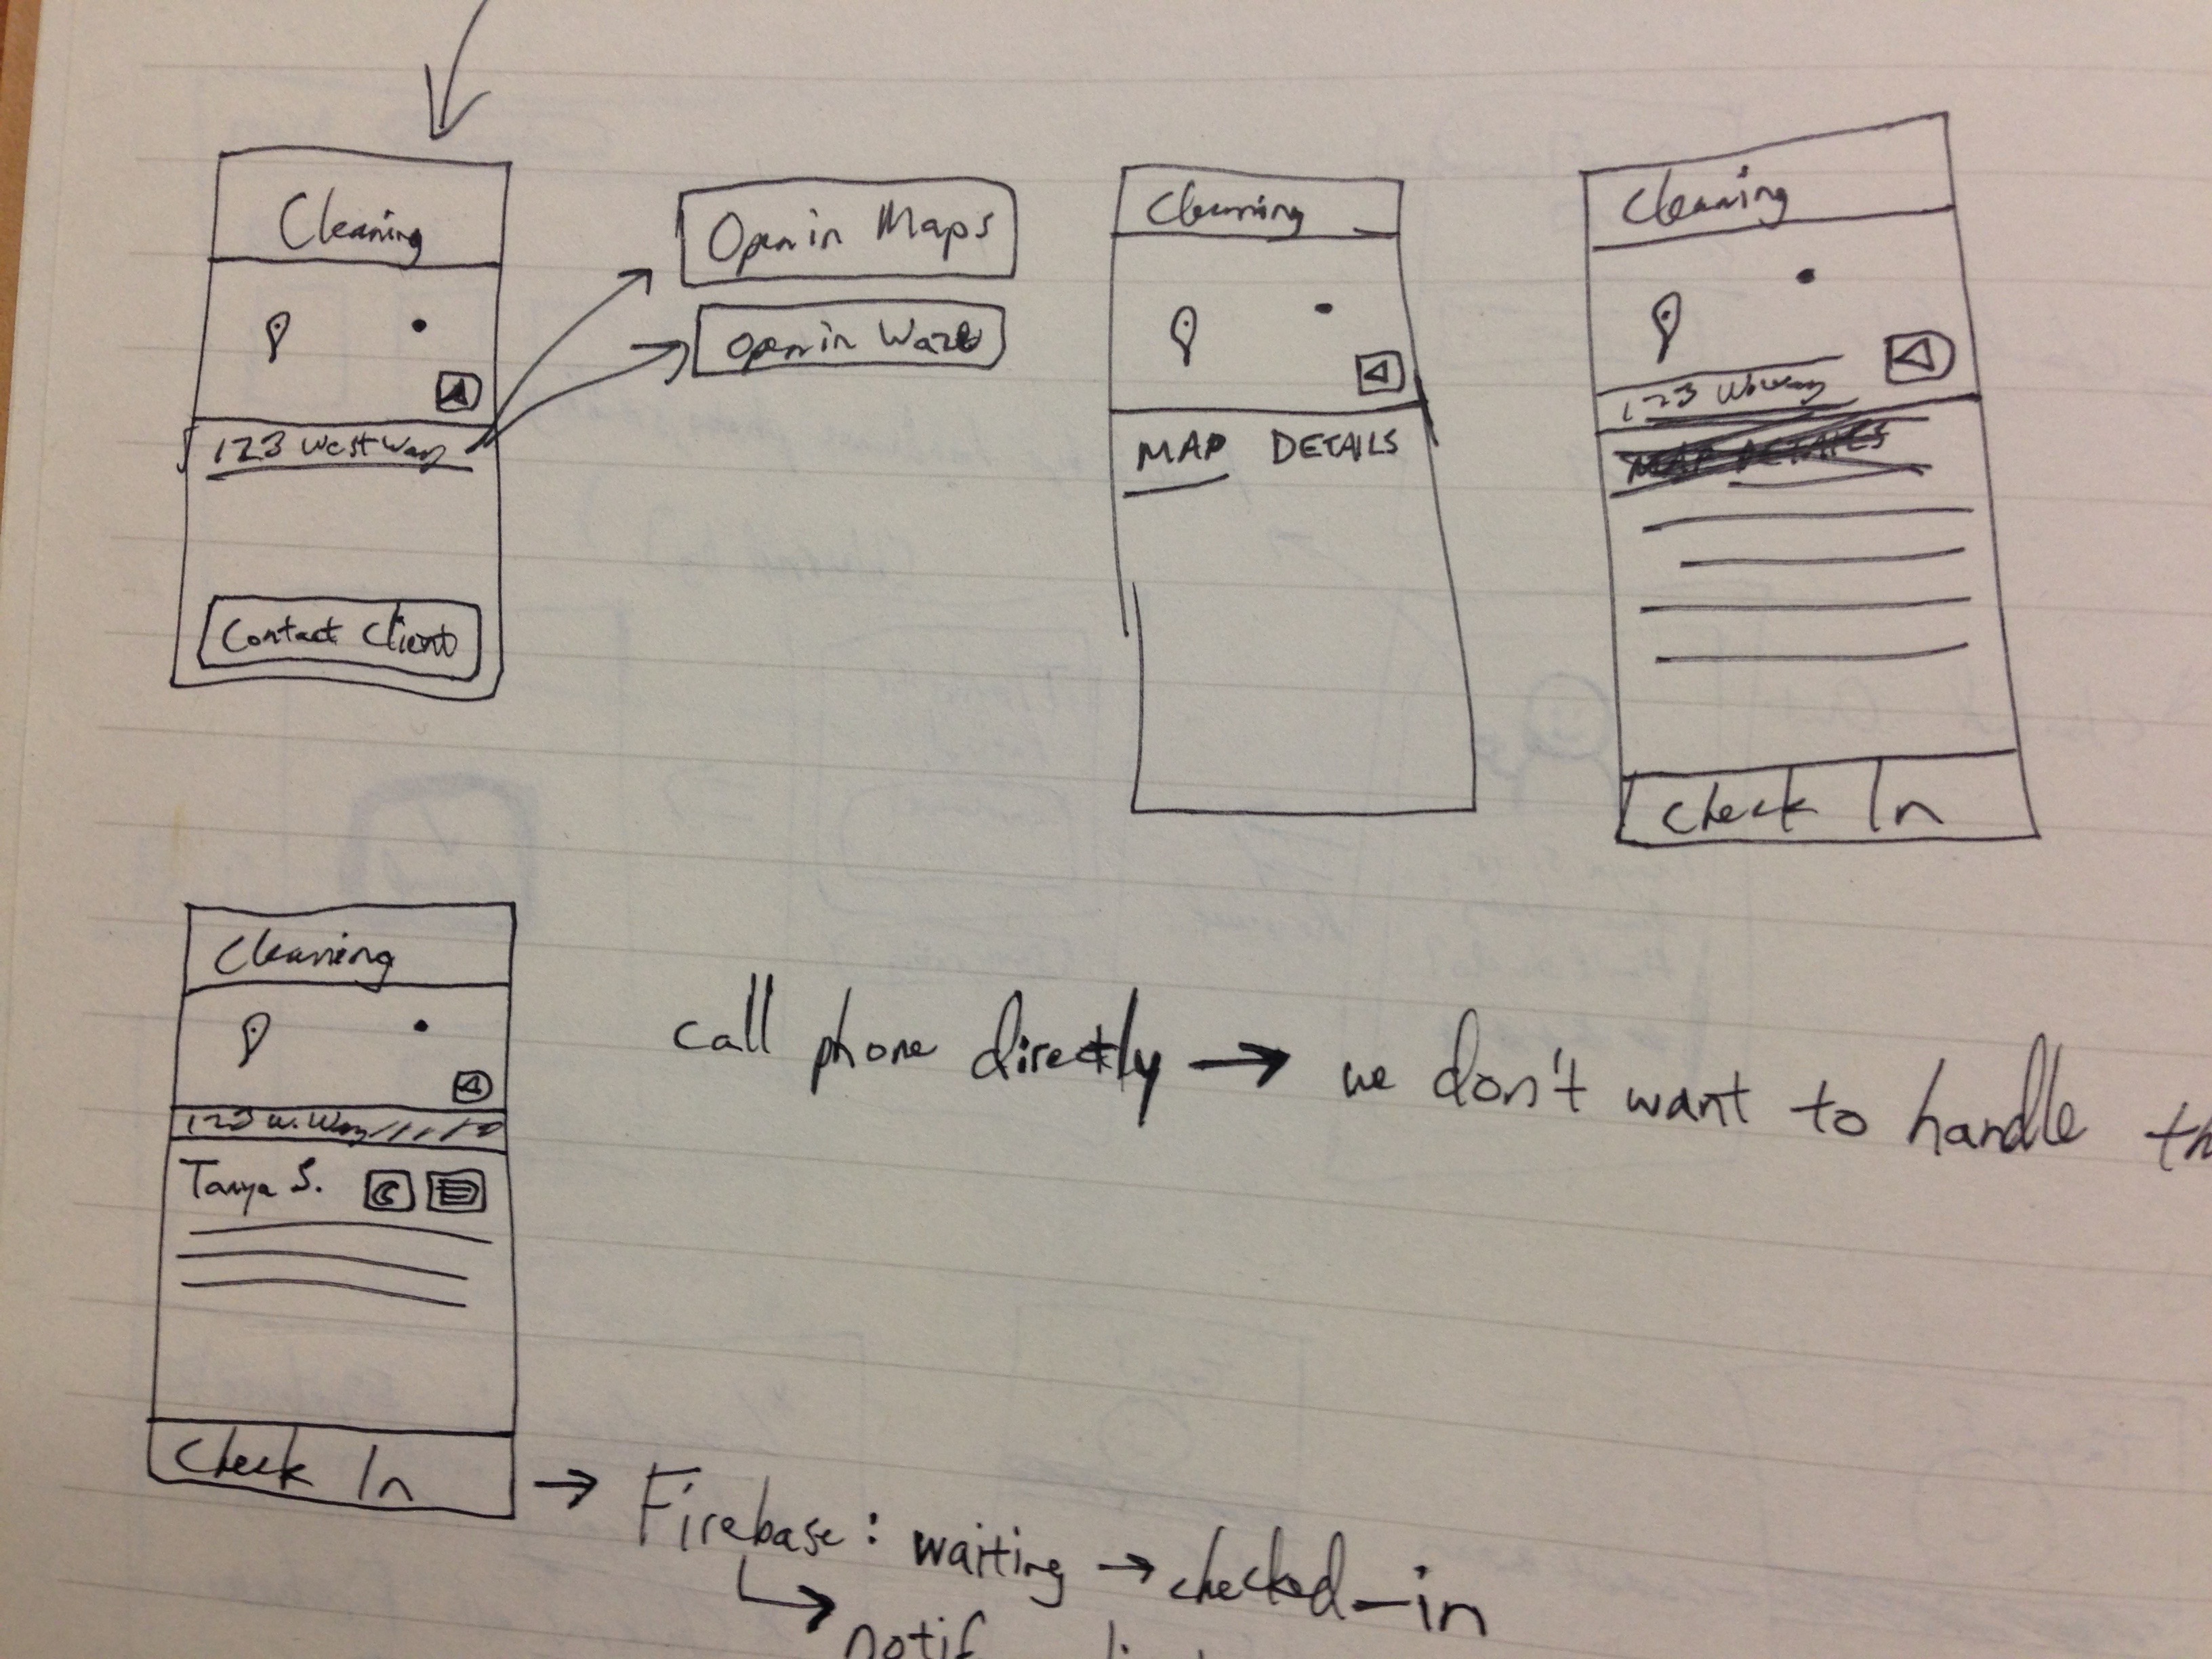 Cleaning
123 West Way
Contact Client
Open in Maps
Open in Waze
Cleaning
MAP DETAILS
Cleaning
123 W. Way
MAP DETAILS
Check In
Cleaning
123 W. Way
Tanya S.
Check In
call phone directly → we don't want to handle th
→ Firebase: waiting → checked-in
→ notif